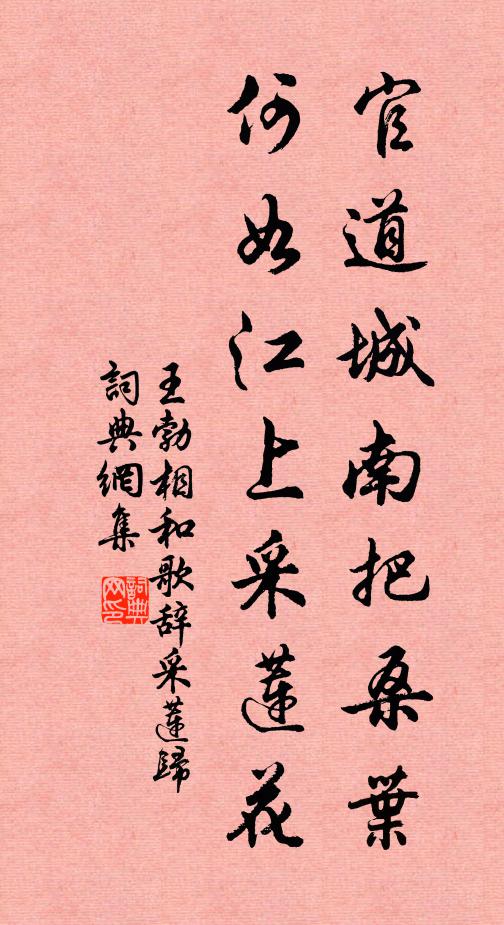 官道城南把桑葉
何如江上采蓮花
王勃相和歌辞采蓮歸
詞典網集
詞典网印